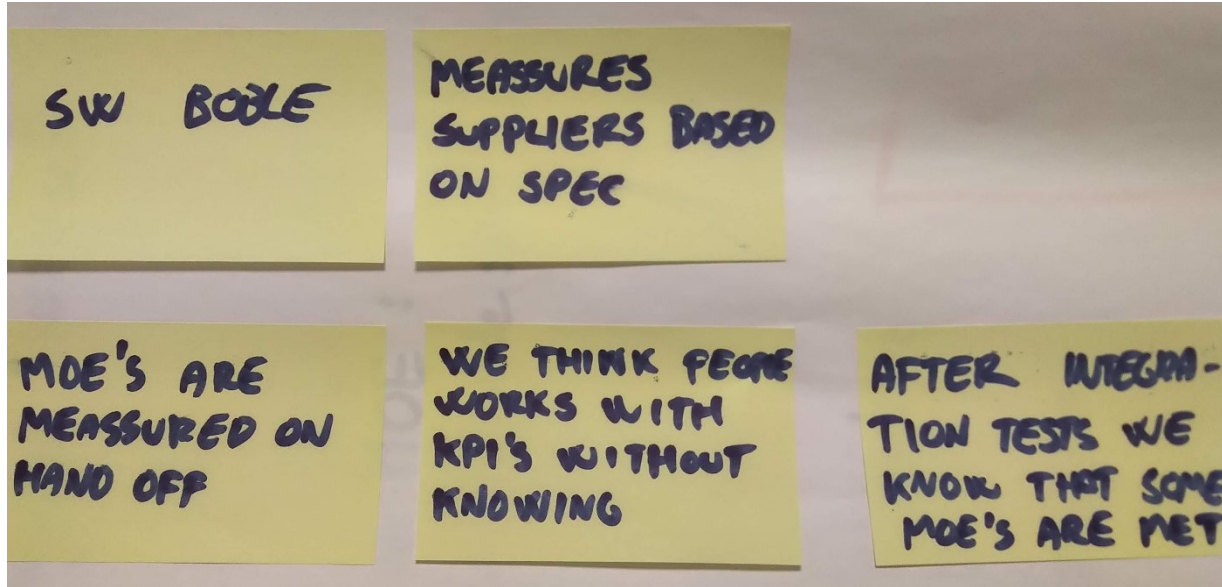 SW BOBLE
MEASSURES
SUPPLIERS BASED
ON SPEC
MOE'S ARE
MEASSURED ON
HAND OFF
WE THINK PEOPLE
WORKS WITH
KPI'S WITHOUT
KNOWING
AFTER INTEGRA-
TION TESTS WE
KNOW THAT SOME
MOE'S ARE MET